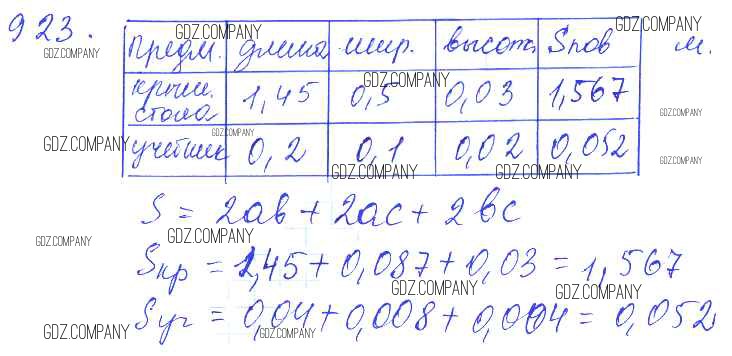 923. GDZ.COMPANY
GDZ.COMPANY
Предм. длина шир. высота Sпов м.
GDZ.COMPANY
крыш. стола 1,45 0,5 0,03 1,567
GDZ.COMPANY
GDZ.COMPANY
GDZ.COMPANY
учебник 0,2 0,1 0,02 0,052
GDZ.COMPANY
GDZ.COMPANY
GDZ.COMPANY
GDZ.COMPANY
S = 2ab + 2ac + 2bc
GDZ.COMPANY
GDZ.COMPANY
Sкр = 1,45 + 0,087 + 0,03 = 1,567
GDZ.COMPANY
GDZ.COMPANY
Sуч = 0,04 + 0,008 + 0,004 = 0,052
GDZ.COMPANY
GDZ.COMPANY